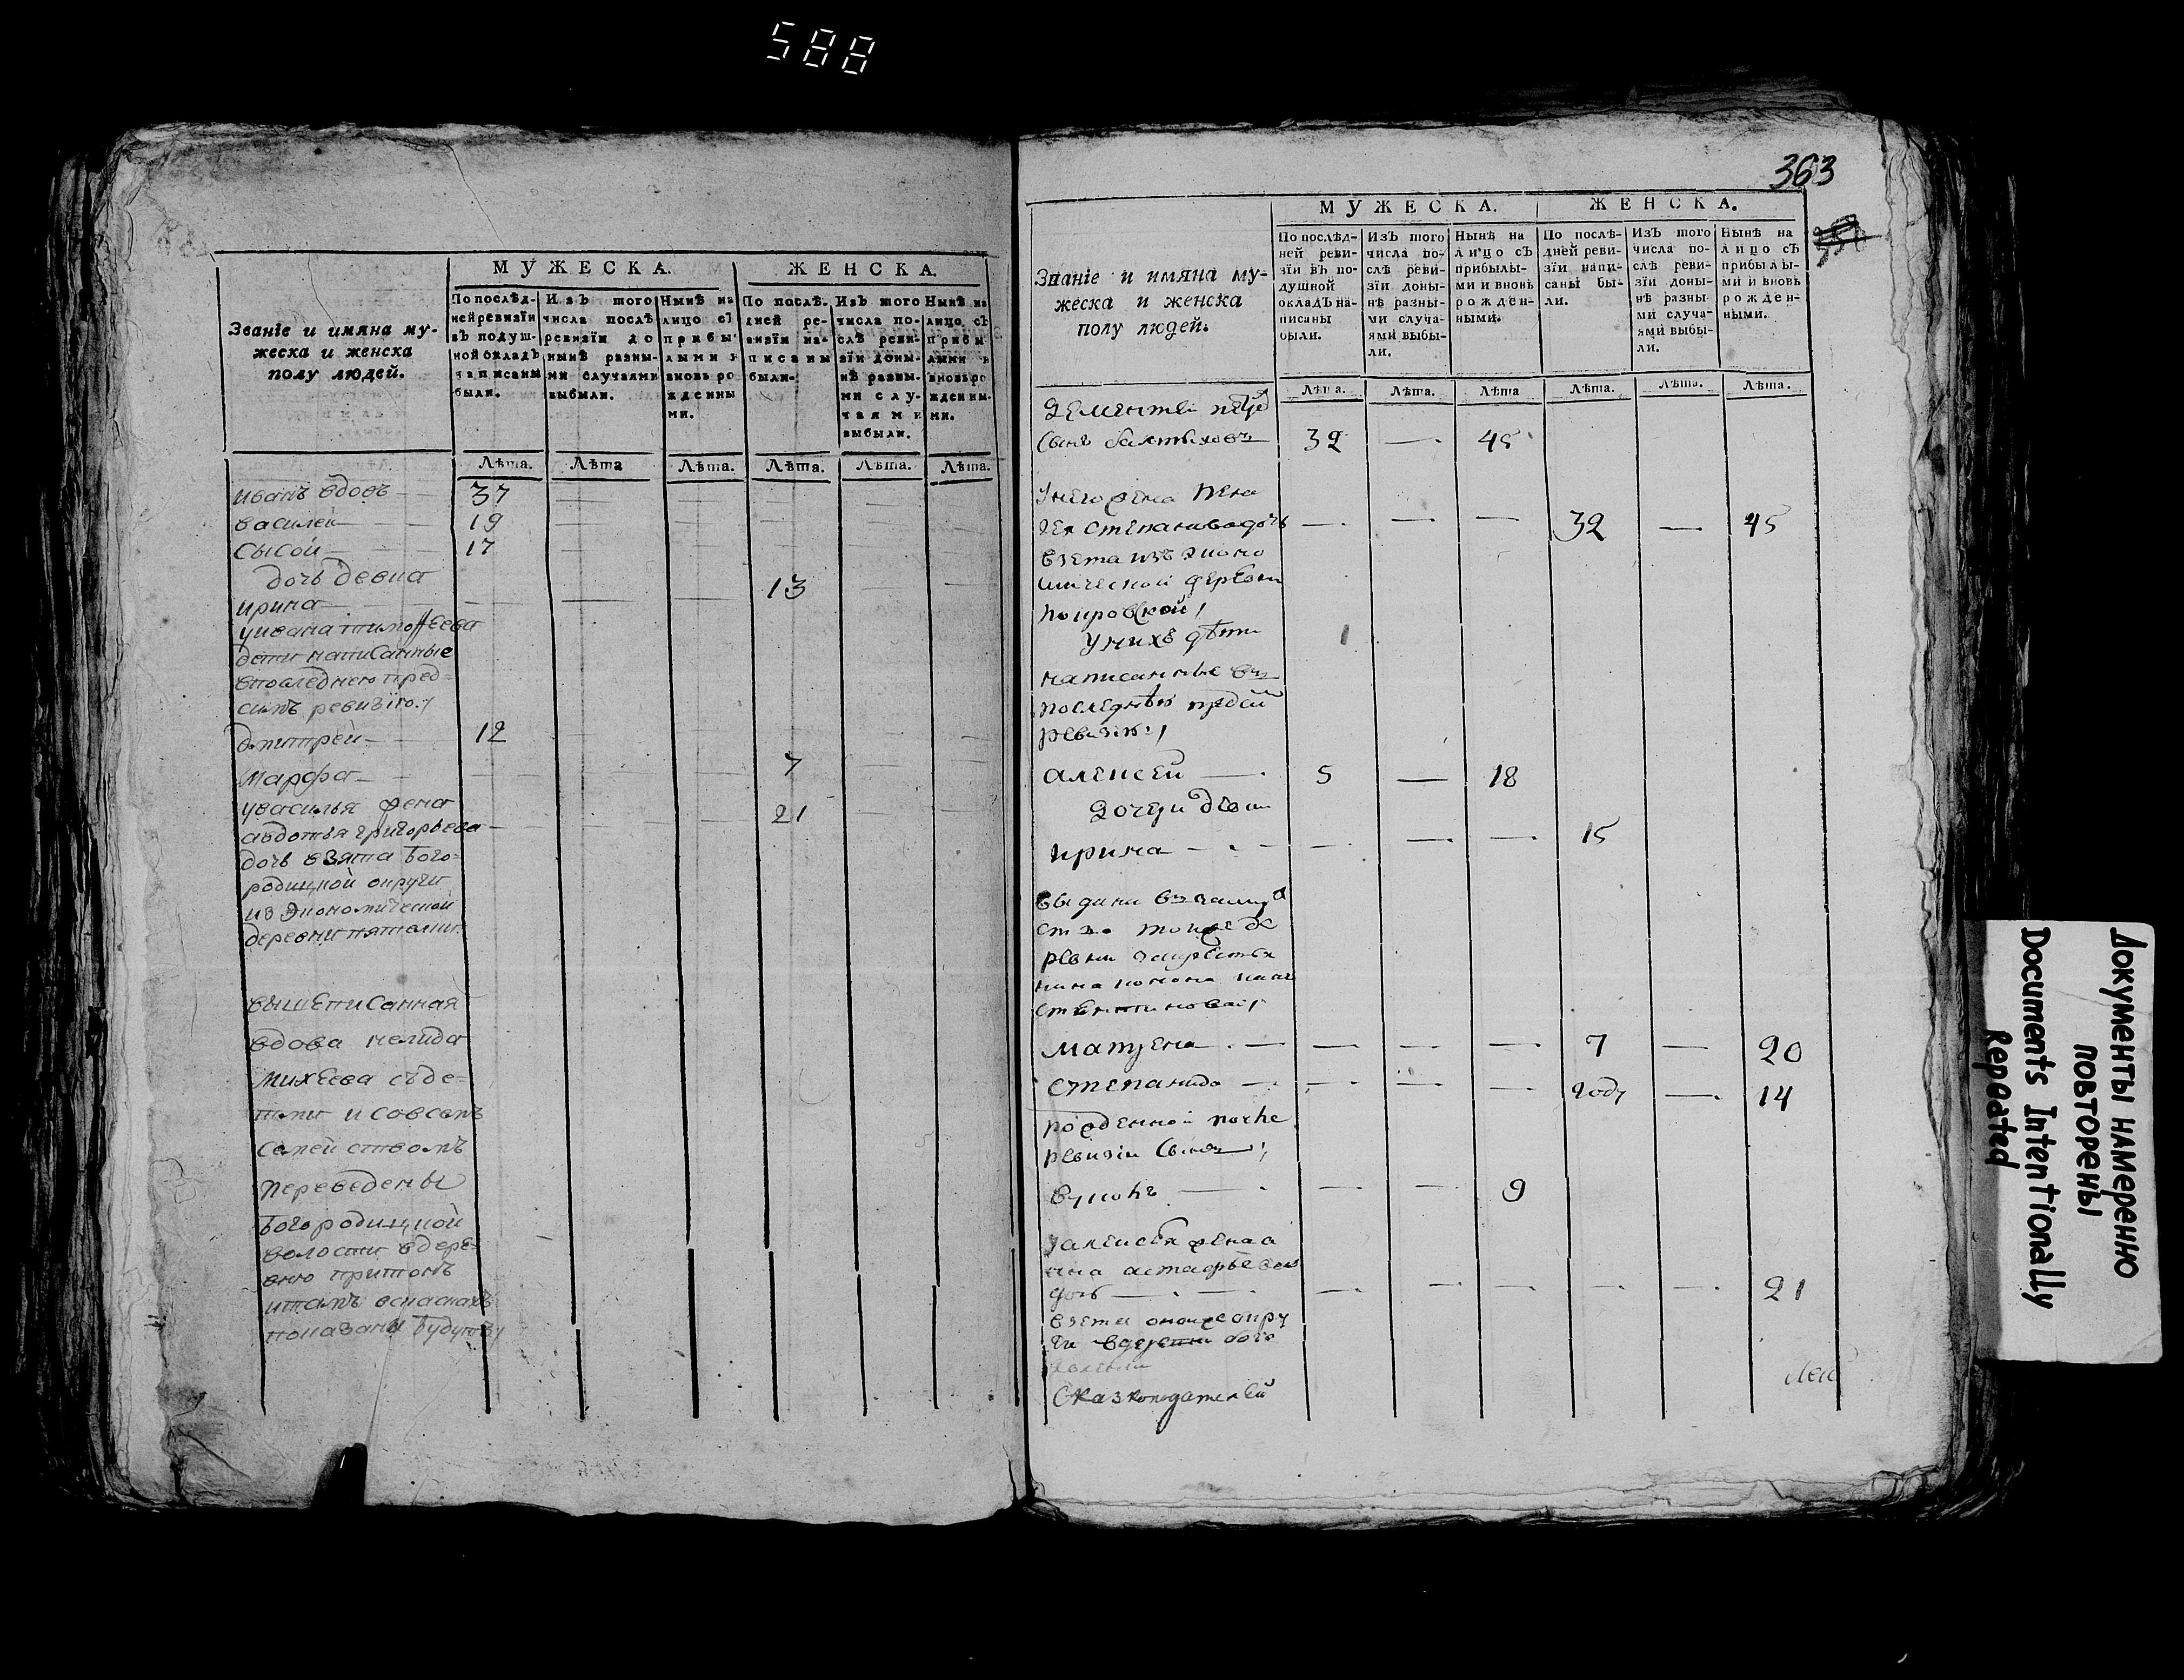 588
МУЖЕСКА. ЖЕНСКА.
Званїе и имяна му-
жеска и женска
полу людей.
По послѣд-
ней ревизїи
въ подуш-
ной окладъ
написаны
были.
Изъ того
числа послѣ
ревизїи до
нынѣ разны-
ми случаями
выбыли.
Нынѣ на
лицо съ
прибы
лыми и
вновь ро
жденны
ми.
По послѣ-
дней ре-
визїи на-
писаны
были.
Изъ того
числа по-
слѣ реви-
зїи доны-
нѣ разны-
ми слу-
чаями
выбыли.
Нынѣ на
лицо съ
прибы
лыми и
вновь ро
жденны-
ми.
Лѣта. Лѣта Лѣта. Лѣта. Лѣта. Лѣта.
иванъ вдовъ 37
василей 19
сысой 17
дочь девка
ирина 13
уивана тимофеева
дети написанные
впоследнею пред=
симъ ревизїю
дмитрей 12
марфа 7
увасилья жена
авдотья григорьева 21
дочь взята бого=
родицкой округи
из экономической
деревни
вышеписанная
вдова
михеева съде=
тми и совсемъ
семействомъ
переведены
богородицкой
волости вдере=
вню притомъ
показаны будутъ
363
МУЖЕСКА. ЖЕНСКА.
Званїе и имяна му-
жеска и женска
полу людей.
По послѣд-
ней реви-
зїи въ по-
душной
окладъ на-
писаны
были.
Изъ того
числа по-
слѣ реви-
зїи доны-
нѣ разны-
ми случа-
ями выбы-
ли.
Нынѣ на
лицо съ
прибылы-
ми и вновь
рожден-
ными.
По послѣ-
дней реви-
зїи напи-
саны бы-
ли.
Изъ того
числа по-
слѣ реви-
зїи доны-
нѣ разны-
ми случа-
ями выбы-
ли.
Нынѣ на
лицо съ
прибылы-
ми и вновь
рожден-
ными.
Лѣта. Лѣта. Лѣта Лѣта. Лѣта. Лѣта.
Дементей
сынъ 32 — 45
унего жена пела
гея степанова дочь — — — 32 — 45
взета изъ эконо
мической деревни
покровской
уних дѣти
написанные въ
последнѣю
ревизию
алексей — 5 — 18
дочери девки
ирина — — — 15
выдана взамуж
ство тойже де
ревни закрестья
нина
матрена — — — 7 — 20
степанида — — — году — 14
рожденной после
ревизiи сынъ
вуколъ — — 9
уалексея жена а
нна астафьева
дочь — — — — — 21
взета оной окру
ги
Сказкоподателей
Документы намеренно
повторены
Documents Intentionally
Repeated